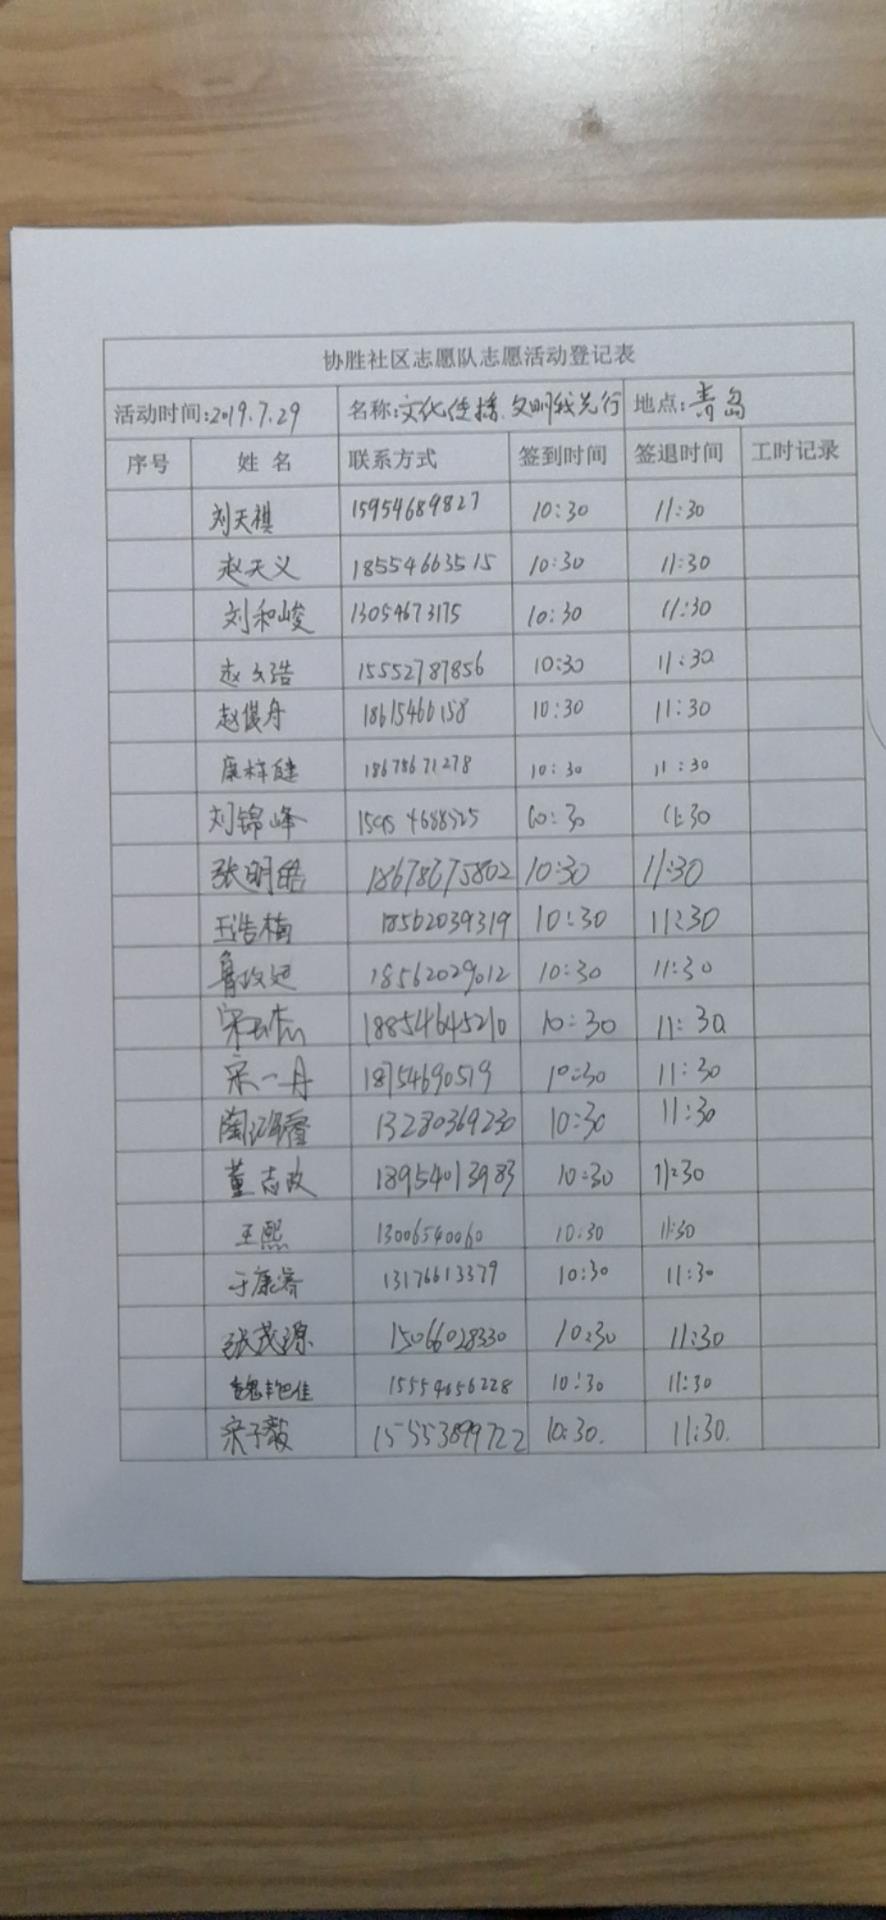 协胜社区志愿队志愿活动登记表
活动时间:2019.7.29 名称:文化传播 文明我先行 地点:青岛
序号 姓名 联系方式 签到时间 签退时间 工时记录
刘天祺 15954689827 10:30 11:30
赵天义 18554663515 10:30 11:30
刘和峻 13054673175 10:30 11:30
赵文浩 15552787856 10:30 11:30
赵俊舟 18615466158 10:30 11:30
康梓健 18678671278 10:30 11:30
刘锦峰 15954688525 10:30 11:30
张明皓 18678675802 10:30 11:30
王浩楠 18562039319 10:30 11:30
鲁政廷 18562029012 10:30 11:30
18854645210 10:30 11:30
宋一丹 18754690519 10:30 11:30
13280369230 10:30 11:30
董志政 18954013983 10:30 11:30
王熙 13006540060 10:30 11:30
于康睿 13176613379 10:30 11:30
张茂源 15066028330 10:30 11:30
15554656228 10:30 11:30
宋子毅 15553899722 10:30. 11:30.